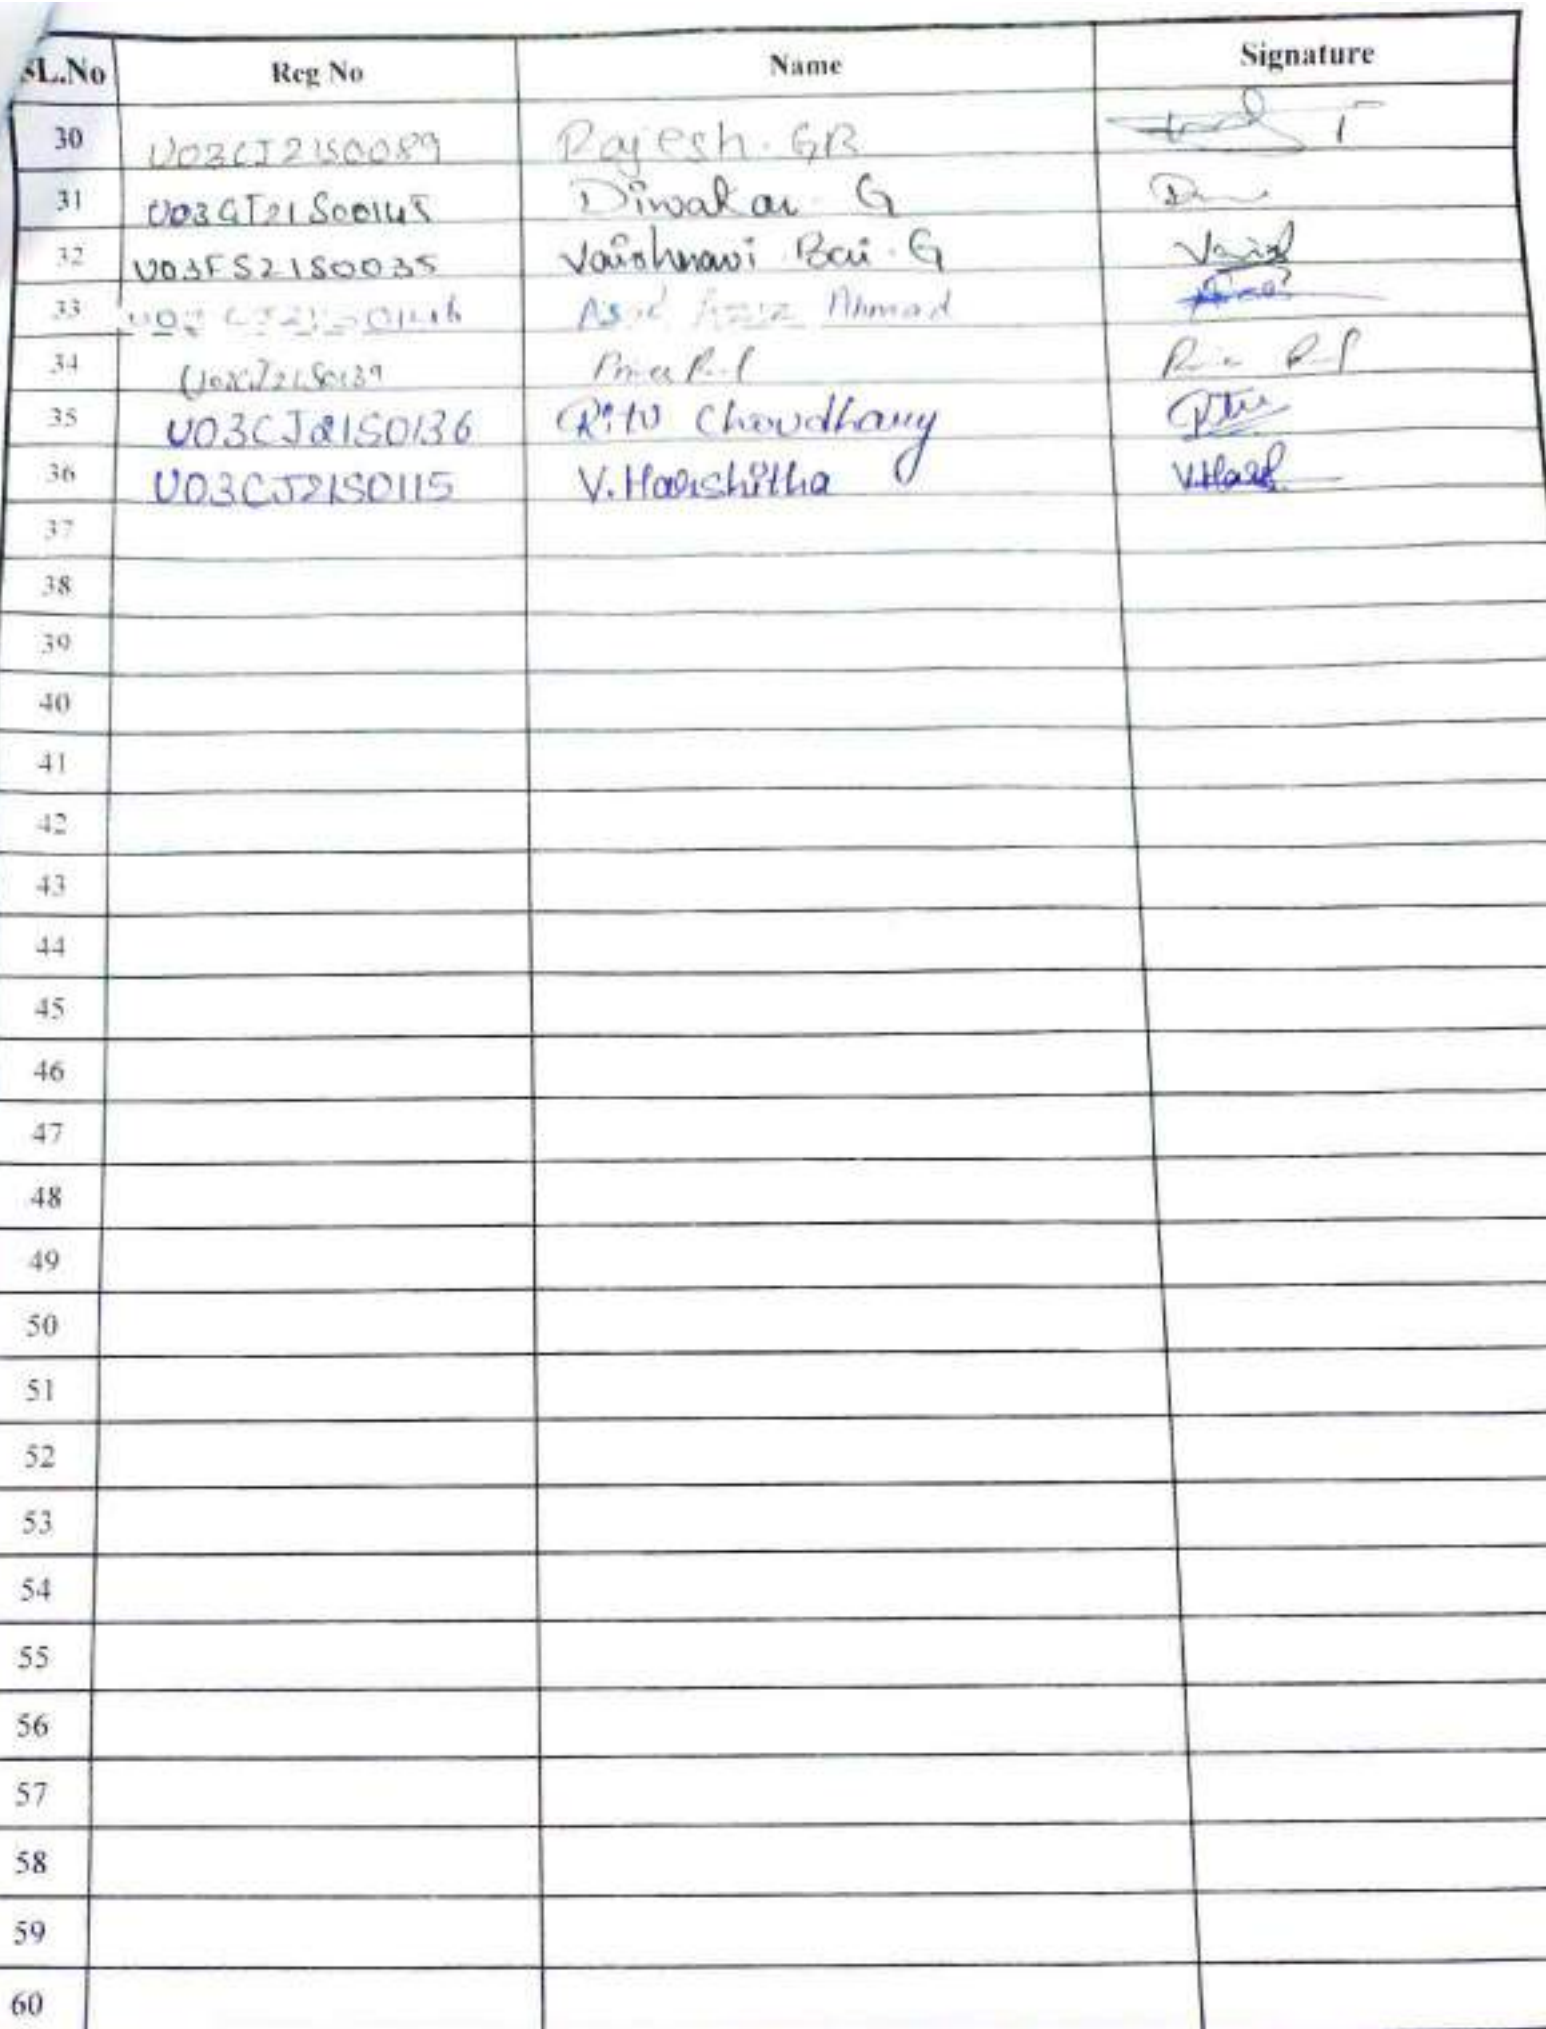 SL.No Reg No Name Signature
30 U03CJ21S0089 Rajesh. GR
31 U03CJ21S00145 Diwakar. G
32 U03FS21S0035 Vaishnavi Bai. G Vaish
33 Aziz Ahmad
34 U03CJ21S0139
35 U03CJ21S0136 Ritu Choudhary Ritu
36 U03CJ21S0115 V.Harshitha V.Harsh
37
38
39
40
41
42
43
44
45
46
47
48
49
50
51
52
53
54
55
56
57
58
59
60